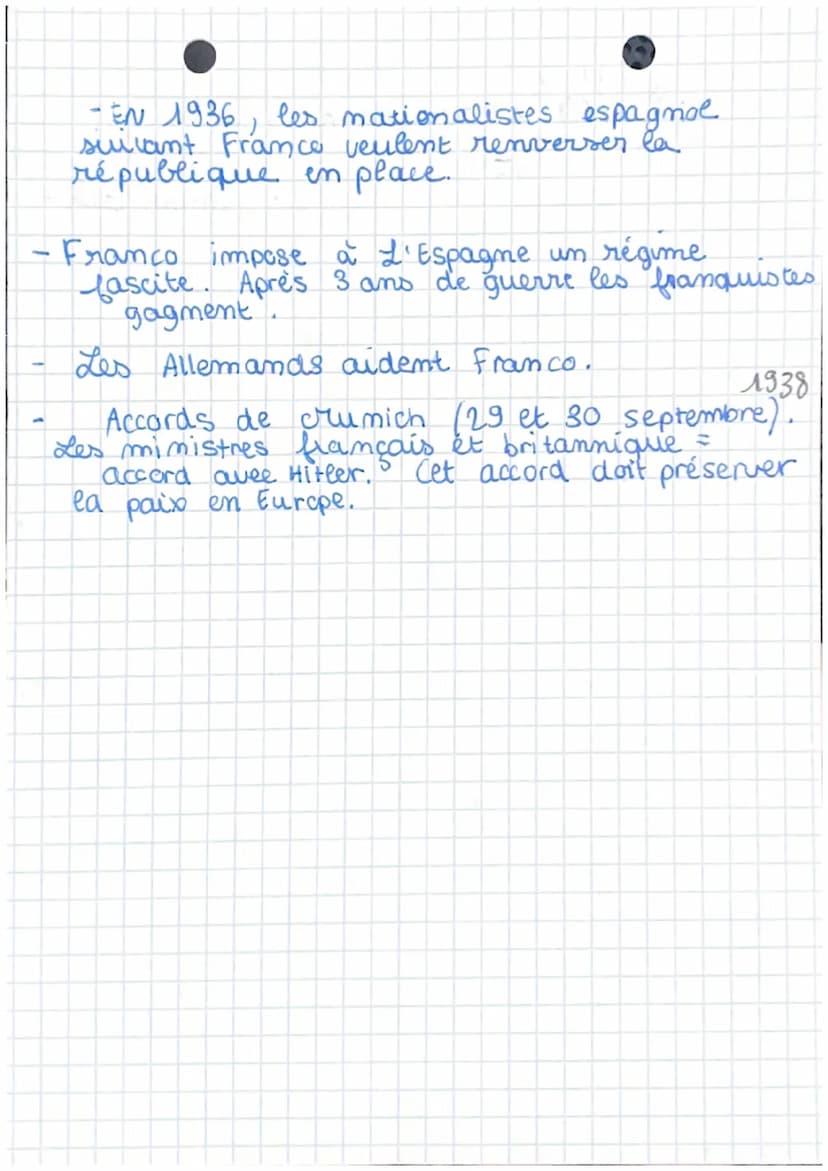 - EN 1936, les nationalistes espagnol
suivant Franco veulent renverser la
république en place.
- Franco impose à L'Espagne un régime
fascite. Après 3 ans de guerre les franquistes
gagnent.
- Les Allemands aident Franco.
1938
- Accords de Munich (29 et 30 septembre).
Les ministres français et britannique =
accord avec Hitler. Cet accord doit préserver
la paix en Europe.